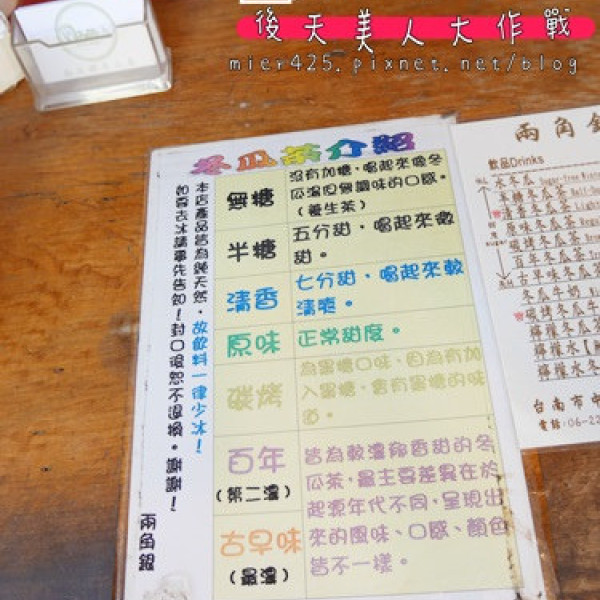 後天美人大作戰
mier425.pixnet.net/blog
冬瓜茶介紹
無糖
沒有加糖、喝起來像冬
瓜湯但無調味的口感。
(養生茶)
半糖
五分甜、喝起來微
甜。
清香
七分甜、喝起來較
清爽。
原味
正常甜度。
碳烤
為黑糖口味、因為有加
入黑糖，會有黑糖的味
道。
百年
(第二濃)
古早味
(最濃)
皆為較濃郁香甜的冬
瓜茶，最主要差異在於
起源年代不同，呈現出
來的風味、口感、顏色
皆不一樣。
本店產品皆為純天然，故飲料一律少冰！
如需去冰請事先告知！封口後恕不退換。謝謝！
兩角銀
兩角銀
飲品Drinks
水冬瓜 Sugar-free
半糖冬瓜茶 Half-Su
清香冬瓜茶 Light
原味冬瓜茶 Regu
碳烤冬瓜茶
百年冬瓜茶
古早味冬瓜
冬瓜牛奶
碳烤冬瓜牛
檸檬冬瓜茶
檸檬水
檸檬水冬
台南市中
電話:06-22